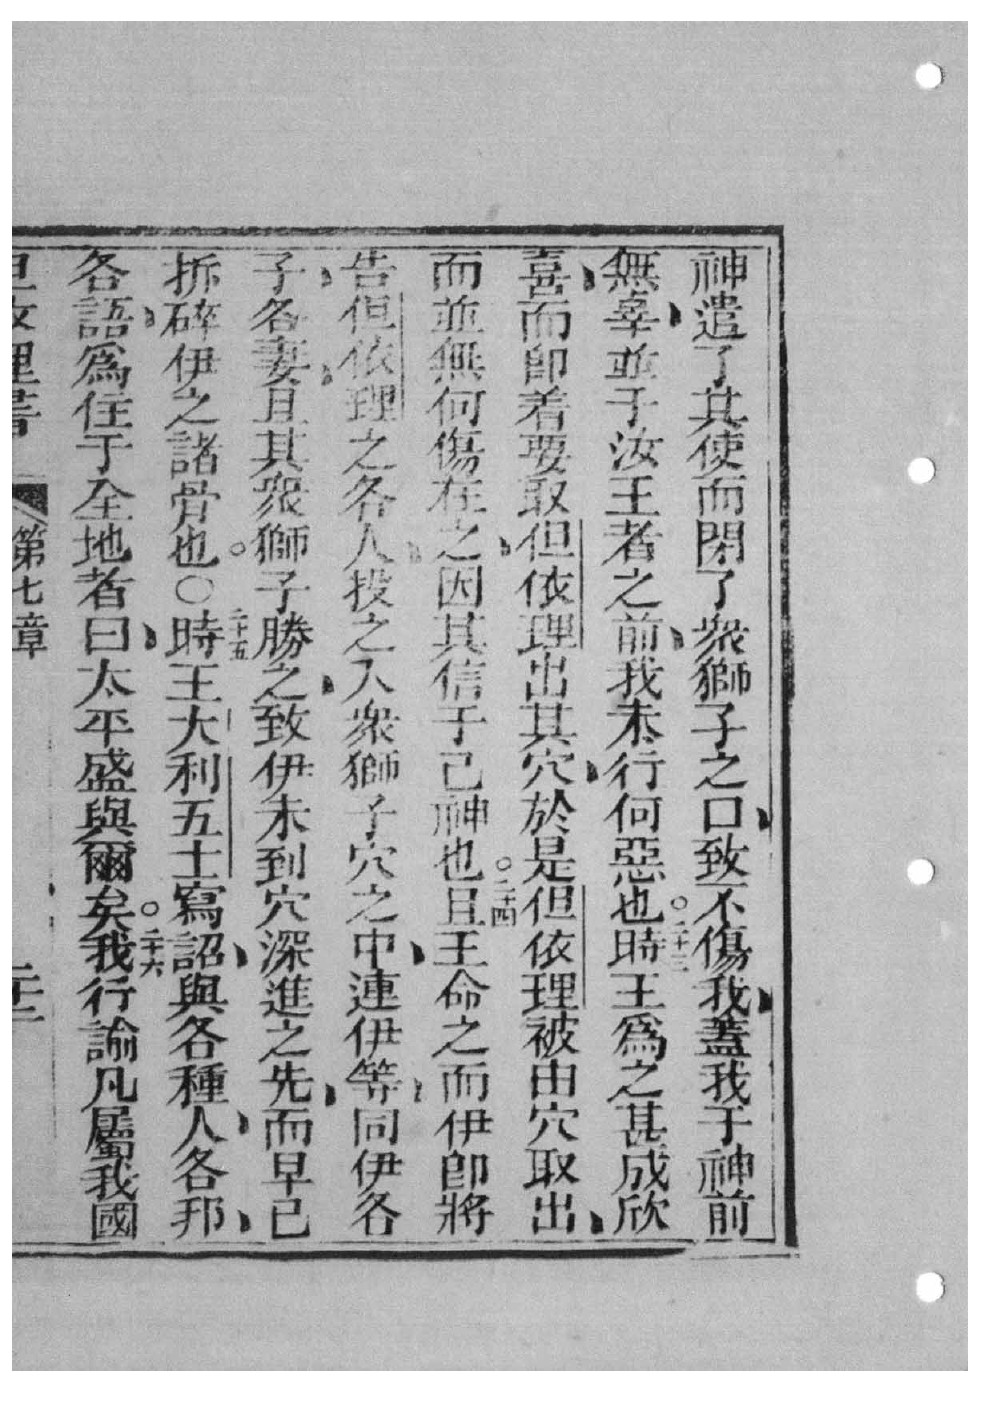 神遣了其使而閉了衆獅子之口致不傷我蓋我于神前
無辜並于汝王者之前我未行何惡也。二十三時王爲之甚成欣
喜而卽着要取但依理出其穴於是但依理被由穴取出
而並無何傷在之因其信于己神也。二十四且王命之而伊卽將
告但依理之各人投之入衆獅子穴之中連伊等同伊各
子各妻且其衆獅子勝之致伊未到穴深進之先而早已
拆碎伊之諸骨也。○二十五時王大利五士寫詔與各種人各邦
各語爲住于全地者曰太平盛與爾矣。二十六我行諭凡屬我國
第七章
二十二